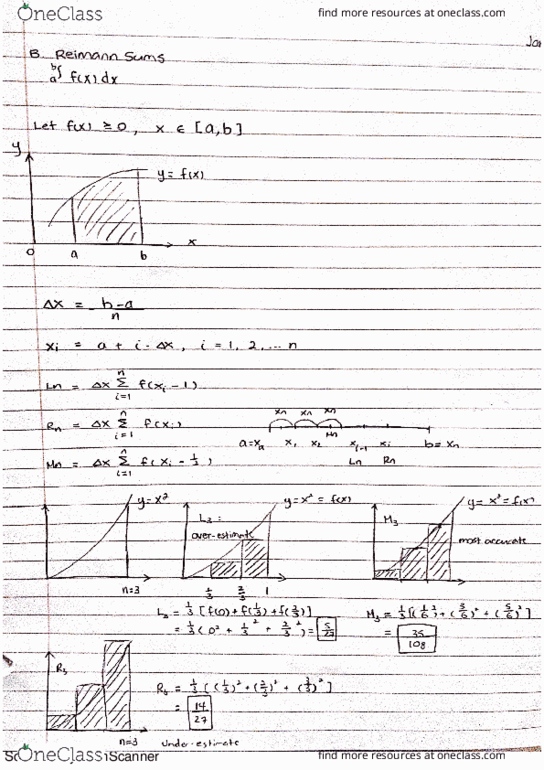 OneClass
find more resources at oneclass.com
Jan
B. Reimann Sums
a∫b f(x) dx
Let f(x) ≥ 0, x ∈ [a,b]
y
y = f(x)
x
0 a b
Δx = b-a / n
xi = a + i · Δx, i = 1, 2, ... n
Ln = Δx Σ i=1 n f(xi - 1)
Rn = Δx Σ i=1 n f(xi)
Mn = Δx Σ i=1 n f(xi - 1/2)
a= x₁ x₂ xi-1 xi b= xn
Ln Rn
y=x²
n=3
L3 =
over-estimate
y=x² = f(x)
1/3 2/3 1
M3
y= x² = f(x)
most accurate
L3 = 1/3 [f(0) + f(1/3) + f(2/3)]
= 1/3 (0² + 1/3² + 2/3²) = 5/27
M3 = 1/3 [(1/6)² + (3/6)² + (5/6)²]
= 35/108
R3
n=3
= 1/3 [(1/3)² + (2/3)² + (3/3)²]
= 14/27
under-estimate
OneClass
Scanner
find more resources at oneclass.com